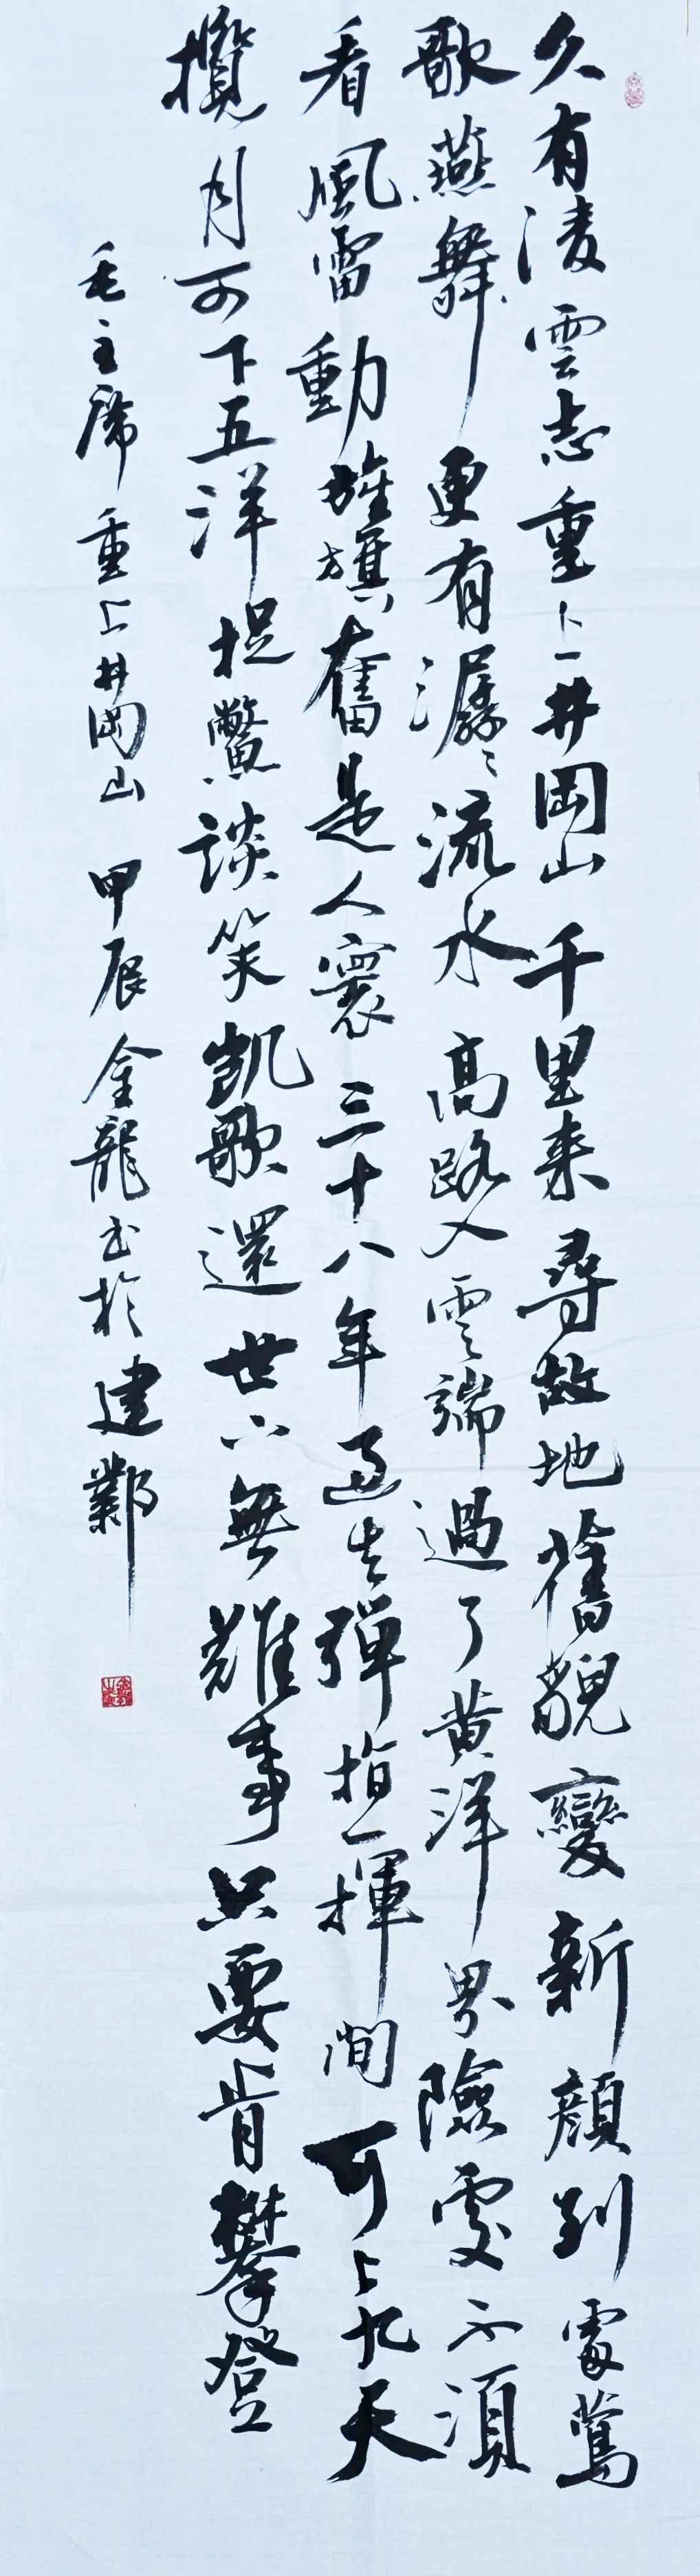 久有淩雲志重上井岡山千里來尋故地舊貌變新顔到處鶯
歌燕舞更有潺〻流水高路入雲端過了黄洋界險處不須
看風雷動旌旗奮是人寰三十八年過去彈指一揮間可上九天
攬月可下五洋捉鱉談笑凱歌還世上無難事只要肯攀登
毛主席重上井岡山甲辰金龍书於建鄴